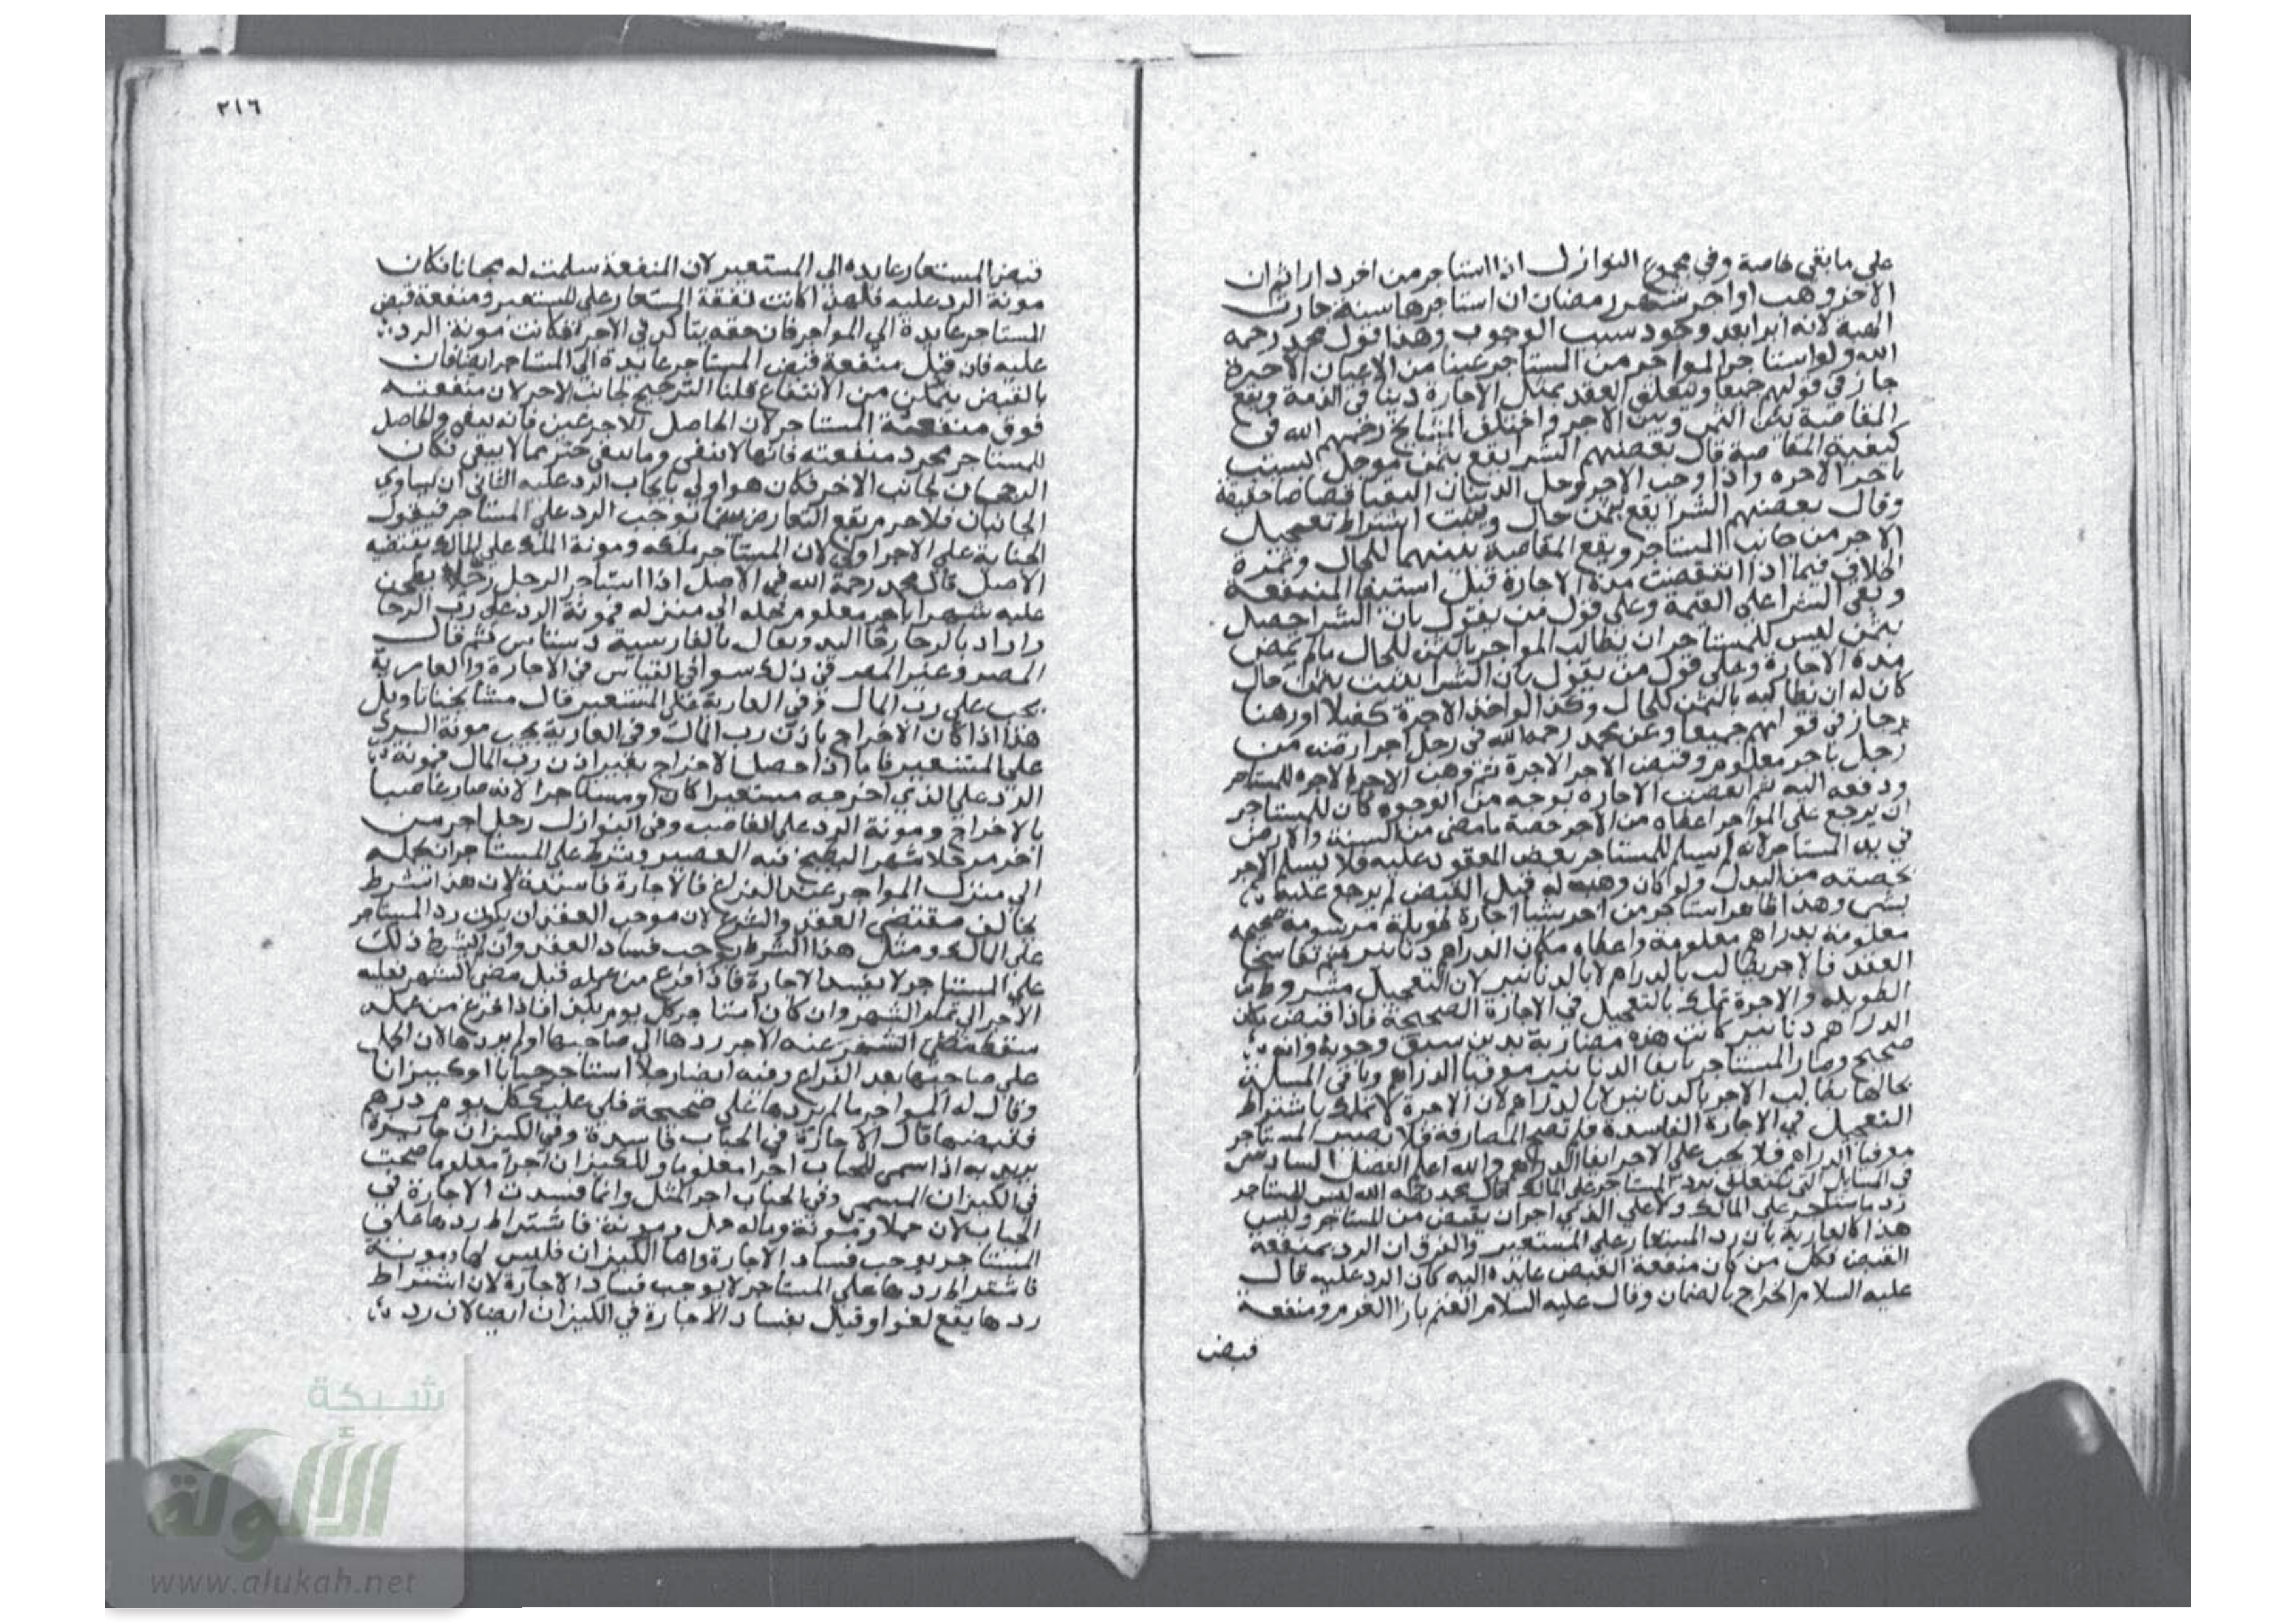 على ما بقي خاصة وفي مجموع النوازل اذا استاجر من اخر دارا ثم ان
الاخر وهب اواجر شهر رمضان ان استاجرها سنة جازت
الهبة لانه ابرا بعد وجود سبب الوجوب وهذا قول محمد رحمه
الله ولو استاجر المواجر من المستاجر عينا من الاعيان الاجيرة
جاز في قولهم جميعا ويتعلق العقد بمثل الاجارة دينا في الذمة ويقع
المقاصة بين الثمن وبين الاجر واختلف المشايخ رحمهم الله في
كيفية المقاصة قال بعضهم الشرا يقع بثمن موجل بسبب
تاخر الاجره واذا وجب الاجر وحل الدينان التقيا قصاصا
وقال بعضهم الشرا يقع بثمن حال ويثبت اشتراط تعجيل
الاجر من جانب المستاجر ويقع المقاصة بينهما للحال وثمرة
الخلاف فيما اذا انتقضت مدة الاجارة قبل استيفا المنفعة
وبقي الشرا على القيمة وعلى قول من يقول بان الشرا حصل
بثمن ليس للمستاجر ان يطالب المواجر بالثمن للحال ما لم يمض
مدة الاجارة وعلى قول من يقول بان الشرا يثبت بثمن حال
كان له ان يطالبه بالثمن للحال وكذا لو اخذ الاجرة كفيلا او رهنا
جاز في قولهم جميعا وعن محمد رحمه الله في رجل اجر ارضه من
رجل باجر معلوم وقبض الاجر الاجرة ثم وهب الاجر الاجره للمستاجر
ودفعه اليه ثم انقضت الاجارة بوجه من الوجوه كان للمستاجر
ان يرجع على المواجر اعطاه من الاجر حصة ما مضى من السنة والارض
في يد المستاجر لانه لم يسلم للمستاجر بعض المعقود عليه فلا يسلم الاجر
بحصته من البدل ولو كان وهبه له قبل القبض لم يرجع عليه
بشي وهذا ظاهر استاجر من اخر شيا اجارة طويلة مرسومة صحيحه
معلومة بدراهم معلومة واعطاه مكان الدراهم دنانير ثم تفاسخا
العقد فالاجر يطالب بالدراهم لا بالدنانير لان التعجيل مشروط
الطويله والاجرة تملك بالتعجيل في الاجارة الصحيحة فاذا قبض مكان
الدراهم دنانير كانت هذه مصارفة بدين سبق وجوبه وانه
صحيح وصار المستاجر بايفا الدنانير موفيا الدراهم وباقي المسلة
بحالها يطالب الاجر بالدنانير لا بالدراهم لان الاجرة لا تملك باشتراط
التعجيل في الاجارة الفاسدة فلم تصح المصارفة فلا يصير المستاجر
موفيا الدراهم فلا يجب على الاجر ايفا الدراهم والله اعلم الفصل السادس
في المسايل التي تتعلق برد المستاجر على المالك قال محمد رحمه الله ليس للمستاجر
رد ما استاجر على المالك ولا على الذي اجر ان يقبض من المستاجر وليس
هذا كالعارية بان رد المستعار على المستعير والفرق ان الرد بمنفعة
القبض فكل من كان منفعة القبض عايده اليه كان الرد عليه قال
عليه السلام الخراج بالضمان وقال عليه السلام الغنم بازا الغرم ومنفعة
قبض
٢١٦
قبض المستعار عايده الى المستعير لان المنفعة سلمت له مجانا فكان
مونة الرد عليه فلهذا كانت نفقة المستعار على المستعير ومنفعة قبض
المستاجر عايدة الى المواجر فان حقه يتاكد في الاجر فكانت مونة الرد
عليه فان قيل منفعة قبض المستاجر عايدة الى المستاجر ايضا فان
بالقبض يتمكن من الانتفاع قلنا الترجيح لجانب الاجر لان منفعته
فوق منفعة المستاجر لان الحاصل للاجر عين فانه يبقى والحاصل
للمستاجر مجرد منفعته فانها لا تبقى وما يبقى خير مما لا يبقى فكان
الرجحان لجانب الاخر فكان هو اولى بايجاب الرد عليه الثاني ان تساوي
الجانبان فلا جرم يقع التعارض بينهما توجب الرد على المستاجر فيقول
الجناية على الاجر اولى لان المستاجر ملكه ومونة الملك على المالك يقتضيه
الاصل قال محمد رحمة الله في الاصل اذا استاجر الرجل رحا يطحن
عليه شهرا باجر معلوم فحمله الى منزله فمونة الرد على رب الرحا
واراد بالرحا رحا اليد ويقال بالفارسية دستاس ثم قال
المصر وغير المصر في ذلك سوا في القياس في الاجارة والعارية
يجب على رب المال وفي العارية على المستعير قال مشايخنا تاويل
هذا اذا كان الاخراج باذن رب المال وفي العارية يجب مونة الرد
على المستعير فاما اذا حصل الاخراج بغير اذن رب المال فمونة
الرد على الذي اخرجه مستعيرا كان او مستاجرا لانه صار غاصبا
بالاخراج ومونة الرد على الغاصب وفي النوازل رجل اجر من
اخر مرجلا شهرا ليطبخ فيه العصير وشرط على المستاجر ان يحمله
الى منزل المواجر عند الفراغ فالاجارة فاسدة لان هذا شرط
يخالف مقتضى العقد والشرع لان موجب العقد ان يكون رد المستاجر
على المالك ومثل هذا الشرط يوجب فساد العقد وان لم يشترط ذلك
على المستاجر لا يفسد الاجارة فاذا فرغ من عمله قبل مضي الشهر فعليه
الاجر الى تمام الشهر وان كان استاجر كل يوم بكذا فاذا فرغ من عمله
سقط عنه الاجر ردها الى صاحبها او لم يردها لان الحمل
على صاحبها بعد الفراغ وفيه ايضا رجلا استاجر حبابا او كيزانا
وقال له المواجر ما لم تردها علي صحيحة فلي عليك كل يوم درهم
فقبضها قال الاجارة في الحباب فاسدة وفي الكيزان جايزة
يريد به اذا سمى للحباب اجرا معلوما وللكيزان اجرا معلوما صحت
في الكيزان المسمى وفي الحباب اجر المثل وانما فسدت الاجارة في
الحباب لان حملا ومونة وماله حمل ومونة فاشتراط ردها على
المستاجر يوجب فساد الاجارة واما الكيزان فليس لها مونة
فاشتراط ردها على المستاجر لا يوجب فساد الاجارة لان اشتراط
ردها يقع لغوا وقيل بفساد الاجارة في الكيزان ايضا لان رد
شبكة
الألوكة
www.alukah.net